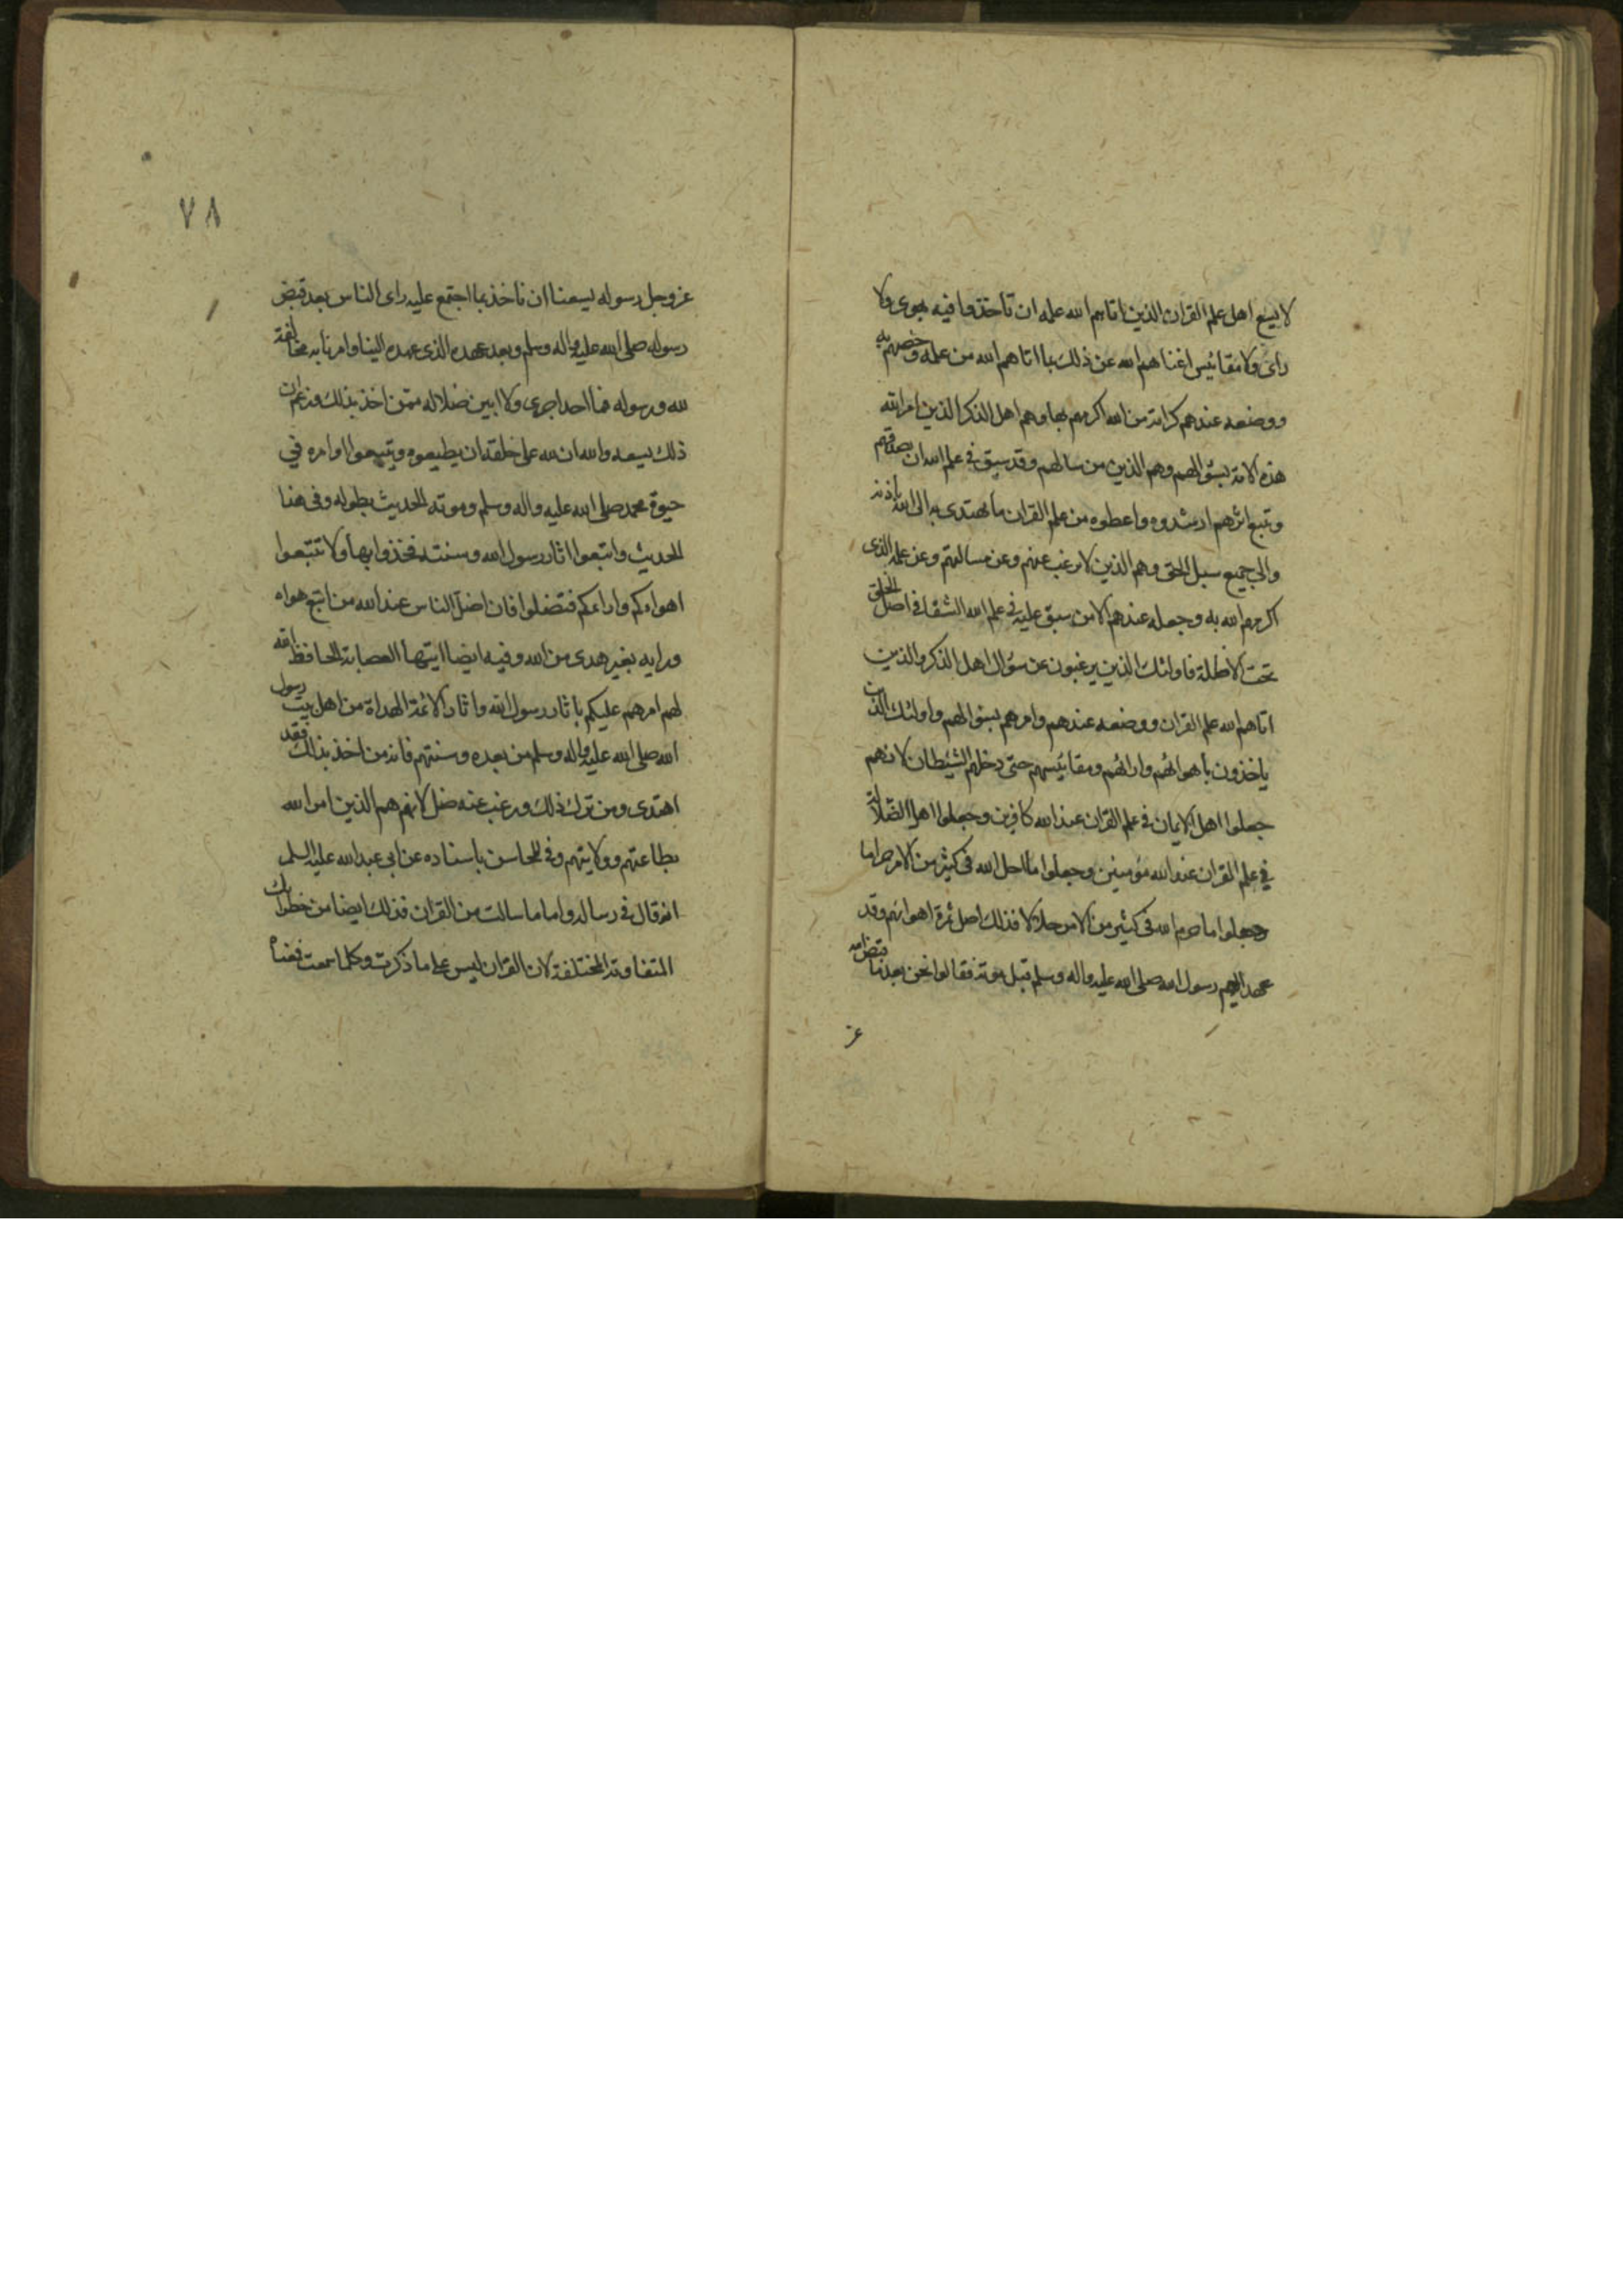 لا يسع اهل علم القران الذين اتاهم الله علمه ان تأخذوا فيه بهوى ولا
راى ولا مقائيس اغناهم الله عن ذلك بما اتاهم الله من علمه وخصهم به
ووضعه عندهم كرامة من الله اكرمهم بها وهم اهل الذكر الذين امر الله
هذه الامة بسؤالهم وهم الذين من سالهم وقد سبق في علم الله ان يصدقهم
وتبع اثرهم ارشدوه واعطوه من علم القران ما يهتدى به الى الله باذنه
والى جميع سبل الحق وهم الذين لا يرغب عنهم وعن مسالتهم وعن علمه الذى
اكرمهم الله به وجعله عندهم الا من سبق عليه في علم الله الشقا في اصل الخلق
تحت الاظلة فاولئك الذين يرغبون عن سؤال اهل الذكر والذين
اتاهم الله علم القران ووضعه عندهم وامرهم بسؤالهم واولئك الذين
ياخذون بأهوائهم وارائهم ومقائيسهم حتى دخلهم الشيطان لانهم
جعلوا اهل الايمان في علم القران عند الله كافرين وجعلوا اهل الضلالة
في علم القران عند الله مؤمنين وجعلوا ما احل الله في كثير من الامر حراما
وجعلوا ما حرم الله في كثير من الامر حلالا فذلك اصل ثمرة اهوائهم وقد
عهد اليهم رسول الله صلى الله عليه واله وسلم قبل موته فقالوا نحن بعد ما قبض الله
عز
٧٨
عز وجل رسوله يسعنا ان ناخذ بما اجتمع عليه راى الناس بعد قبض
رسوله صلى الله عليه واله وسلم وبعد عهده الذى عهده الينا وامرنا به مخالفة
لله ورسوله فما احد اجرى ولا ابين ضلاله ممن اخذ بذلك وزعم ان
ذلك يسعه والله ان لله على خلقه ان يطيعوه ويتبعوا اوامره في
حيوة محمد صلى الله عليه واله وسلم وموته الحديث بطوله وفى هذا
الحديث واتبعوا اثار رسول الله وسنته فخذوا بها ولا تتبعوا
اهواءكم واراءكم فتضلوا فان اضل الناس عند الله من اتبع هواه
ورايه بغير هدى من الله وفيه ايضا ايتها العصابة الحافظ الله
لهم امرهم عليكم بأثار رسول الله واثار الائمة الهداة من اهل بيت رسول
الله صلى الله عليه واله وسلم من بعده وسنتهم فانه من اخذ بذلك فقد
اهتدى ومن ترك ذلك ورغب عنه ضل لانهم هم الذين امر الله
بطاعتهم وولايتهم وفى المحاسن باسناده عن ابى عبد الله عليه السلم
انه قال في رسالة واما ما سالت من القران فذلك ايضا من خطراتك
المتفاوتة المختلفة لان القران ليس على ما ذكرت وكلما سمعت فمعناه